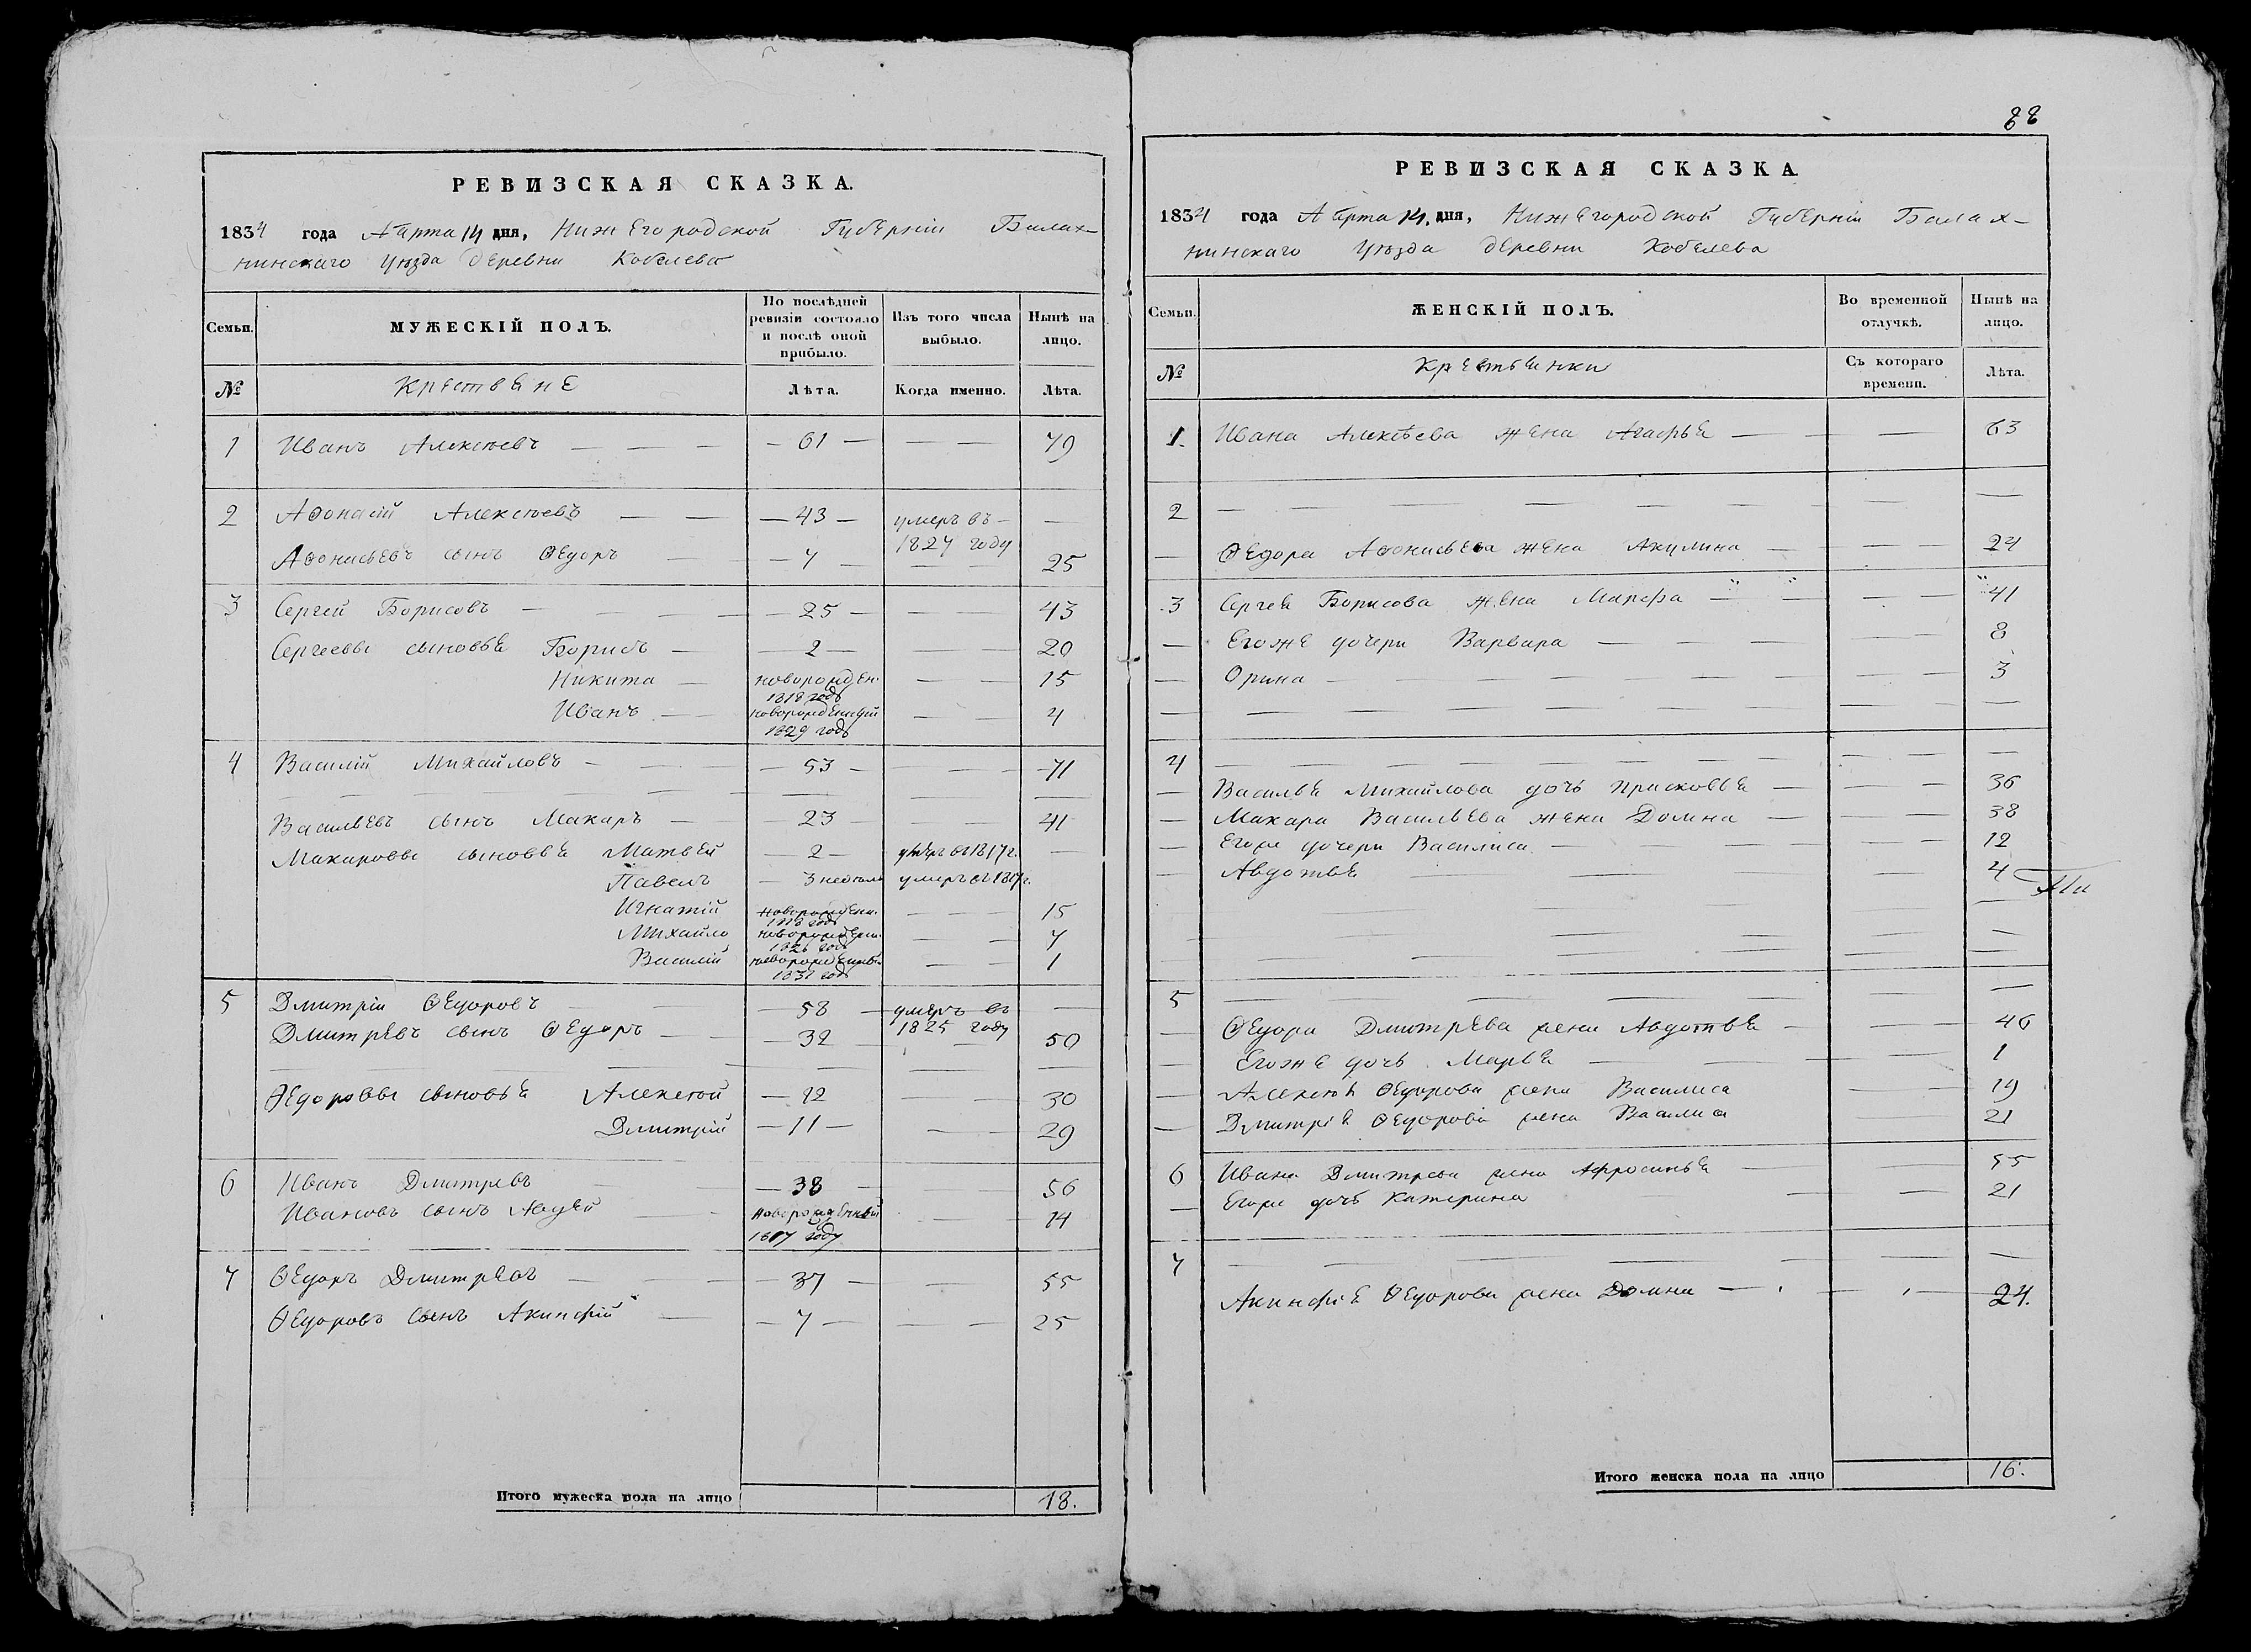 88
РЕВИЗСКАЯ СКАЗКА.
1834 года Марта 14 дня, Нижегородской Губерніи Балах-
нинскаго уѣзда деревни Кобелева
Семьи. МУЖЕСКІЙ ПОЛЪ. По послѣдней ревизіи состояло и послѣ оной прибыло. Изъ того числа выбыло. Нынѣ на лицо.
№ Крестьяне Лѣта. Когда именно. Лѣта.
1 Иванъ Алексѣевъ — — — — 61 — — — 79
2 Аѳонасій Алексѣевъ — — — 43 — умеръ въ — —
1827 году
Аѳонасьевъ сынъ Ѳедоръ — — 7 — — — 25
3 Сергей Борисовъ — — — — — 25 — — — 43
Сергеевы сыновья Борисъ — — 2 — — — 20
Никита — новорожден. — — 15
1818 годъ
Иванъ — новорожденный — — 4
1829 годъ
4 Василій Михайловъ — — — — 53 — — — 71
Васильевъ сынъ Макаръ — — 23 — — — 41
Макаровы сыновья Матвей — 2 — умеръ въ 1817 г. —
Павелъ — 3 недели умеръ въ 1817 г.
Игнатій новорожден. — — 15
1818 годъ
Михайло новорожден. — — 7
1826 годъ
Василій новорожденный — — 1
1831 годъ
5 Дмитрій Ѳедоровъ — — — 58 — умеръ въ —
1825 году
Дмитревъ сынъ Ѳедоръ — — — 32 — — 50
Ѳедоровы сыновья Алексѣй — 12 — — 30
Дмитрій — 11 — — — 29
6 Иванъ Дмитревъ — — — 38 — — 56
Ивановъ сынъ Авдей — новорожденный — 14
1817 году
7 Ѳедоръ Дмитревъ — — — — 37 — — 55
Ѳедоровъ сынъ Акинфій — — 7 — — — 25
Итого мужеска пола на лицо 18.
РЕВИЗСКАЯ СКАЗКА
1834 года Марта 14. дня, Нижегородской Губерніи Балах-
нинскаго уѣзда деревни Кобелева
Семьи. ЖЕНСКІЙ ПОЛЪ. Во временной отлучкѣ. Нынѣ на лицо.
№ Крестьянки Съ котораго времени. Лѣта.
1. Ивана Алексѣева жена Агафья — — — 63
2 — — — — — — —
— Ѳедора Аѳонасьева жена Акулина — — — 24
3 Сергея Борисова жена Марфа — — — — 41
— Егоже дочери Варвара — — — — — 8
— Орина — — — — — — — 3
4 — — — — — — — —
— Василья Михайлова дочь Прасковья — — — 36
— Макара Васильева жена Домна — — — 38
— Егоже дочери Василиса — — — 12
— Авдотья — — — 4
5 — — — — —
— Ѳедора Дмитрева жена Авдотья — — — 46
— Егоже дочь Марья — — — 1
— Алексѣя Ѳедорова жена Василиса — — 19
— Дмитрія Ѳедорова жена Василиса — — 21
6 Ивана Дмитрева жена Афросинья — — 55
— Егоже дочь Катерина — — 21
7 — — — — — — —
Акинфія Ѳедорова жена Домна — — — 24.
Итого женска пола на лицо 16.